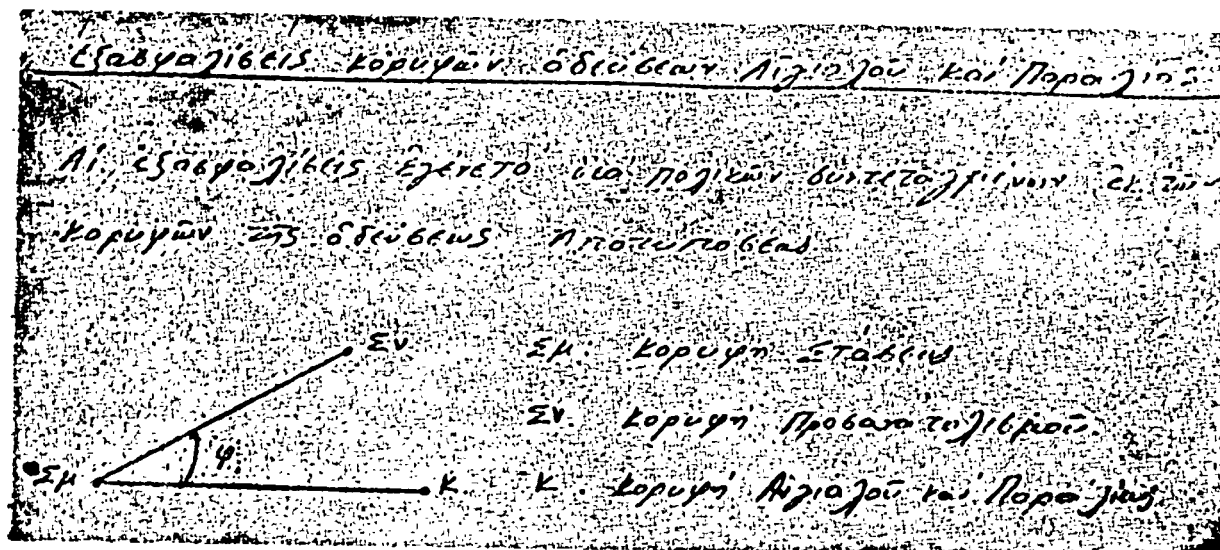 Ἐξασφαλίσεις κορυφῶν ὁδεύσεων Αἰγιαλοῦ καὶ Παραλίας
Αἱ ἐξασφαλίσεις ἐγένετο διά πολικῶν συντεταγμένων ἐκ τῶν
κορυφῶν τῆς ὁδεύσεως Ἀποτυπώσεως
Σν
Σμ
φ
Κ
Σμ. Κορυφή Στάσεως
Σν. Κορυφή Προσανατολισμοῦ.
Κ. Κορυφή Αἰγιαλοῦ καί Παραλίας